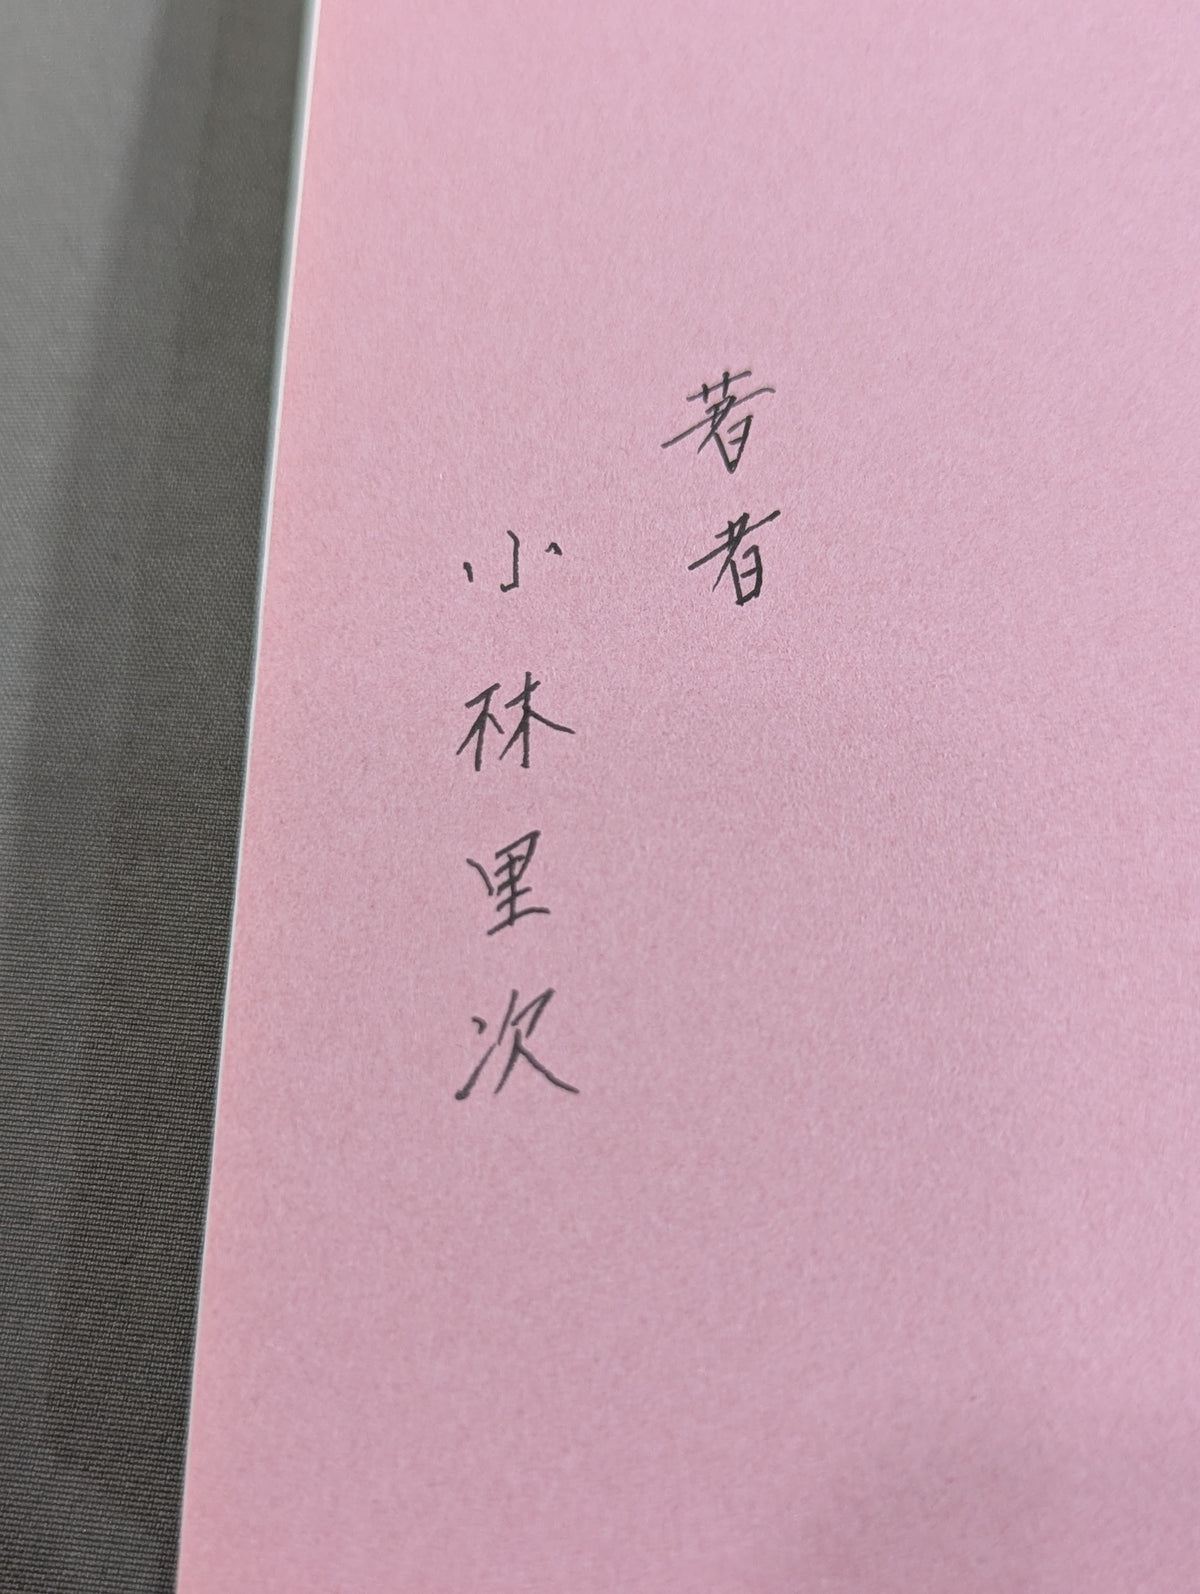 著者
小林里次